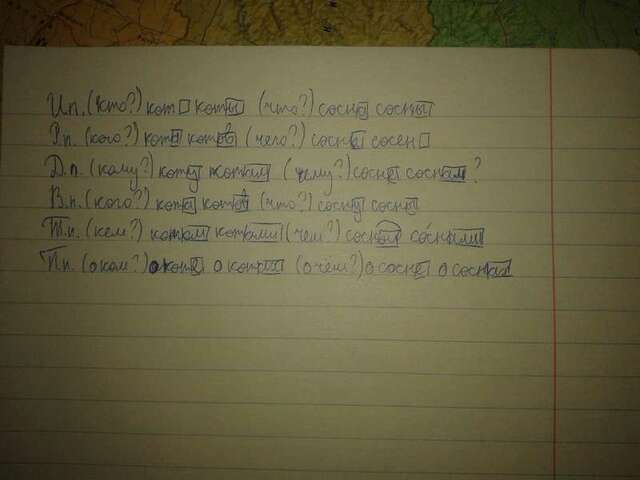 И.п. (кто?) кот коты (что?) сосна сосны
Р.п. (кого?) кота котов (чего?) сосны сосен
Д.п. (кому?) коту котам (чему?) сосне соснам ?
В.п. (кого?) кота котов (что?) сосну сосны
Т.п. (кем?) котом котами (чем?) сосной соснами
П.п. (о ком?) о коте о котах (о чём?) о сосне о соснах